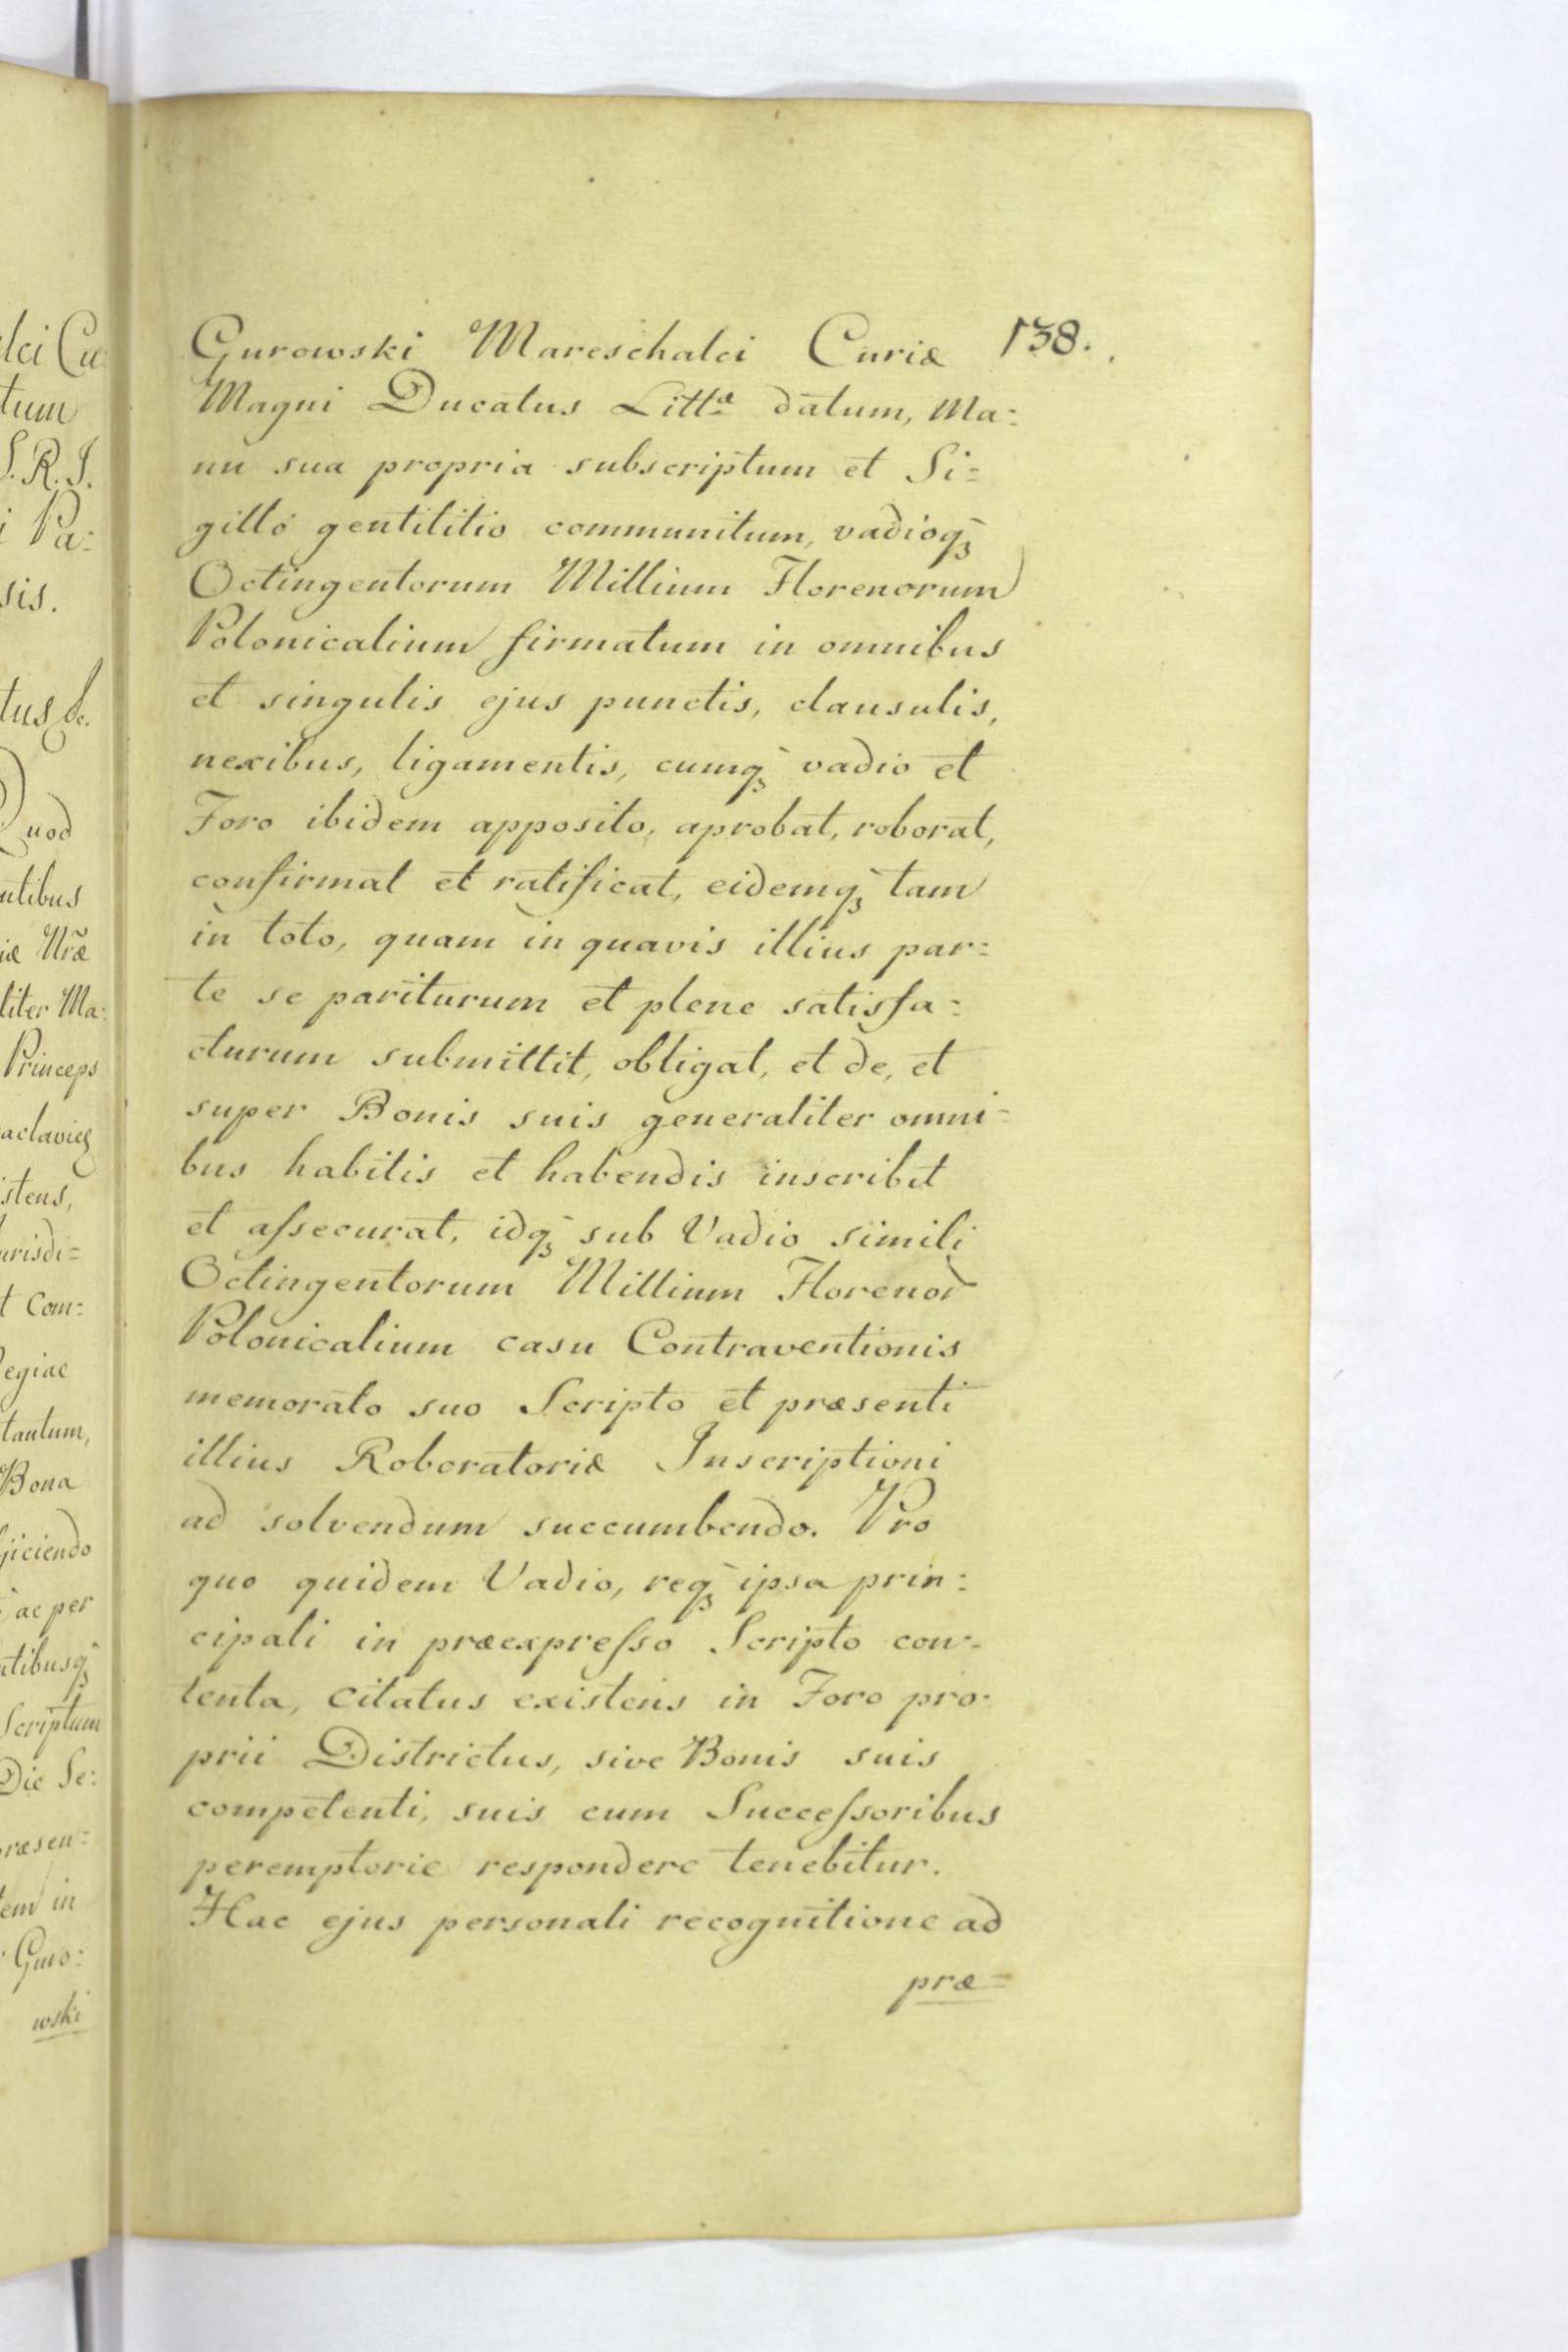 lci Cu
tum
S. R. I.
i Pa:
sis.
tus &c.
Quod
ntibus
iæ Nr̃æ
liter Ma:
Princeps
istens,
urisdi=
t Com:
egiae
tantum,
Bona
jiciendo
ac per
ntibusq̀ꝫ
Scriptum
Die Se:
ræsen=
em in
Guro:
wski
Gurowski Mareschalci Curiæ 138.
Magni Ducatus Littæ datum, Ma:
nu sua propria subscriptum et Si=
gilló gentilitio communitum, vadioq̀ꝫ
Octingentorum Millium Florenorum
Polonicalium firmatum in omnibus
et singulis ejus punctis, clausulis,
nexibus, ligamentis, cumq̀ꝫ vadio et
Foro ibidem apposito, aprobat, roborat,
confirmat et ratificat, eidemq̀ꝫ tam
in toto, quam in quavis illius par=
te se pariturum et plene satisfa=
cturum submittit, obligat, et de, et
super Bonis suis generaliter omni=
bus habitis et habendis inscribit
et aſsecurat, idq̀ꝫ sub Vadio simili
Octingentorum Millium Florenor̃
Polonicalium casu Contraventionis
memorato suo Scripto et præsenti
illius Roboratoriæ Inscriptioni
ad solvendum succumbendo. Pro
quo quidem Vadio, req̀ꝫ ipsa prin=
cipali in præexpreſso Scripto con=
tenta, citatus existens in Foro pro=
prii Districtus, sive Bonis suis
competenti, suis cum Succeſsoribus
peremptorie respondere tenebitur.
Hac ejus personali recognitione ad
præ=